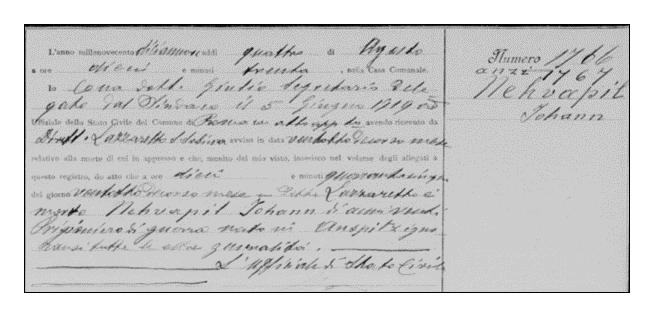 L'anno millenovecento diciannove addì quattro di Agosto
a ore dieci e minuti trenta, nella Casa Comunale.
Io Cona dott. Giulio Segretario Dele
gato dal Sindaco il 5 Giugno 1919
Uffiziale dello Stato Civile del Comune di Roma avendo ricevuto da
Dirett. Lazzaretto S. Sabina avviso in data ventotto decorso mese
relativo alla morte di cui in appresso e che, munito del mio visto, inserisco nel volume degli allegati a
questo registro, do atto che a ore dieci e minuti quarantacinque
del giorno ventotto decorso mese in detto Lazzaretto è
morto Nehvapil Johann di anni venti
Prigioniero di guerra nato in Auspitz igno
ransi tutte le altre generalità.
L'Uffiziale di Stato Civile
Numero 1766
anzi 1767
Nehvapil
Johann